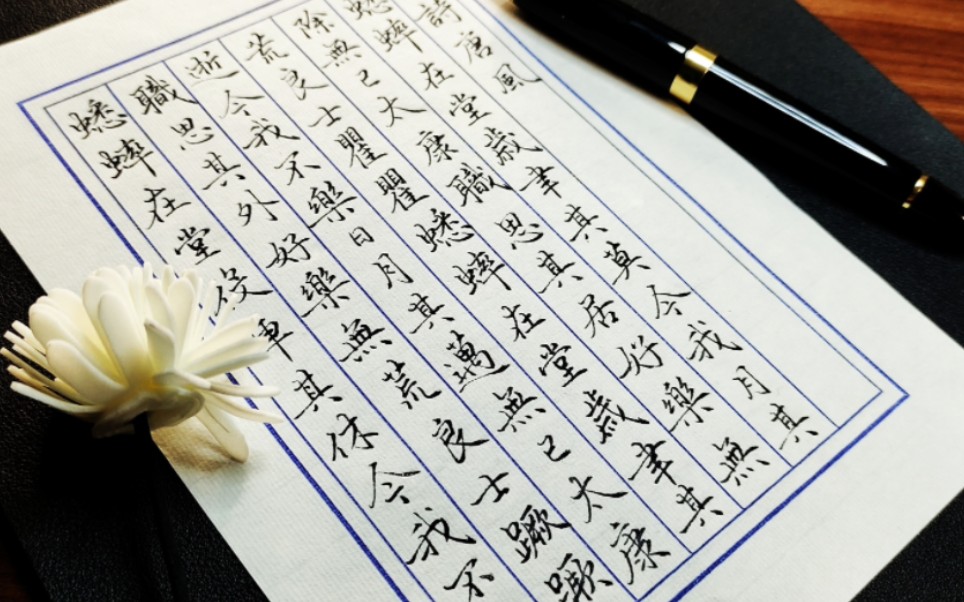 詩唐風
蟋蟀在堂歲聿其莫今我月其
除無已太康職思其居好樂無
荒良士瞿瞿蟋蟀在堂歲聿其
逝今我不樂日月其邁無已太康
職思其外好樂無荒良士蹶蹶
蟋蟀在堂役車其休今我不